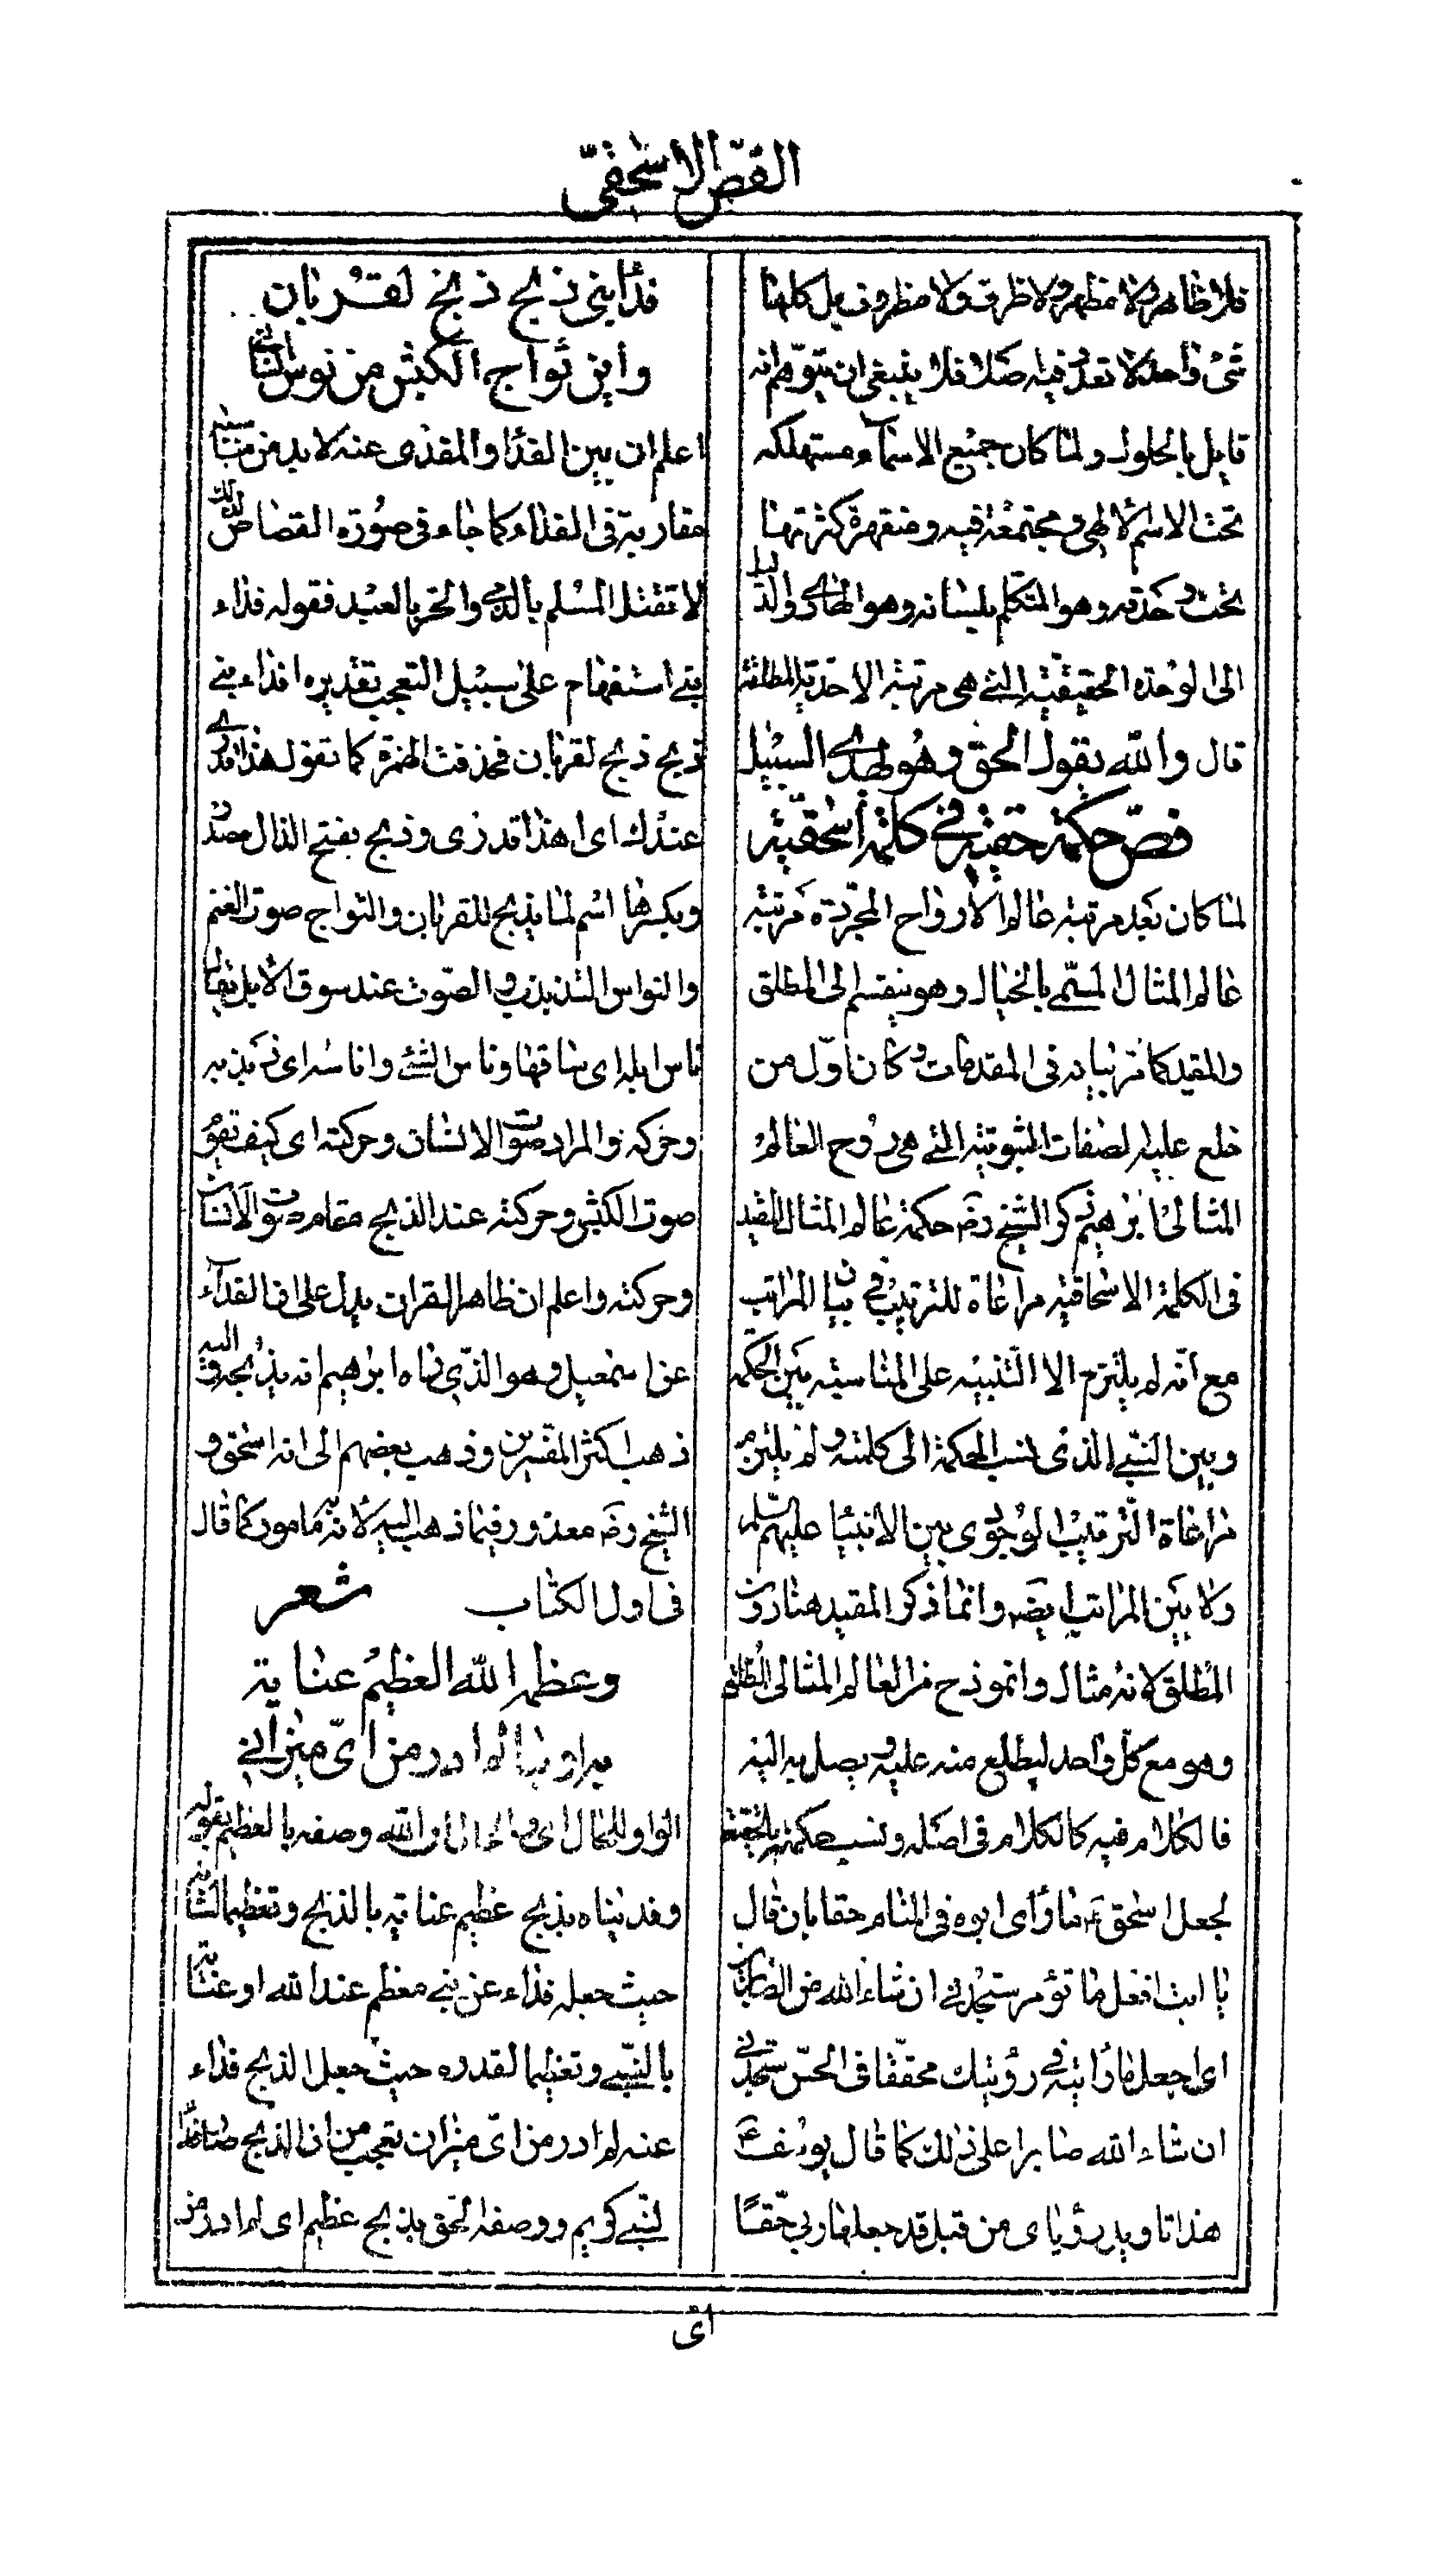 الفصّ الاسحقیّ
فلا ظاهر ولا مظهر ولا ظرف ولا مظروف بل كلها
شیٔ واحد لا تعدد فیه اصلا فلا ینبغی ان یتوهم انه
قایل بالحلول ولما كان جمیع الاسمآء مستهلكه
تحت الاسم الالهی ومجتمعة فیه ومنقهرة كثرتها
تحت وحدته وهو المتكلم بلسانه وهو الهادی والدلیل
الی الوحدة الحقیقیة التی هی مرتبة الاحدیة المطلقة
قال والله یقول الحق وهو یهدی السبیل
فصّ حكمة حقیة فی كلمة اسحقیّة
لما كان بعد مرتبة عالم الارواح المجردة مرتبة
عالم المثال المسمی بالخیال وهو ینقسم الی المطلق
والمقید كما مر بیانه فی المقدمات وكان اول من
خلع علیه الصفات الثبوتیة التی هی روح العالم
المثالی ابرهیم ذكر الشیخ رضه حكمة عالم المثال المقید
فی الكلمة الاسحاقیة مراعاة للترتیب فی بیان المراتب
مع انه لم یلتزم الا التنبیه علی المناسبة بین الحكمة
وبین النبی الذی نسب الحكمة الی كلمته ولم یلتزم
مراعاة الترتیب الوجودی بین الانبیا علیهم السلم
ولا بین المراتب ایضه وانما ذكر المقید هنا دون
المطلق لانه مثال وانموذج من العالم المثالی المطلق
وهو مع كل واحد لیطلع منه علیه ویصل به الیه
فالكلام فیه كالكلام فی اصله ونسب حكمته بالحقیة
لجعل اسحق ع ما رأی ابوه فی المنام حقا بان قال
یا ابت افعل ما تؤمر ستجدنی ان شاء الله من الصابرین
ای اجعل ما رأیته فی رؤیتك محققا فی الحس ستجدنی
ان شاء الله صابرا علی ذلك كما قال یوسف ع
هذا تاویل رؤیای من قبل قد جعلها ربی حقًا
فدٓا نبی ذبح ذبح لقربان
وأین ثواج الكبش من نوس انسان
اعلم ان بین الفدا والمفدی عنه لا بد من مناسبة
مقاربة فی الفداء كما جاء فی صورة القصاص لذلك
لا تقتل المسلم بالذمی والحر بالعبد فقوله فداء
نبی استفهام علی سبیل التعجب تقدیره افداء نبی
ذبح ذبح لقربان فحذفت الهمزة كما تقول هذا قدری
عندك ای اهذا قدری وذبح بفتح الذال مصدر
وبكسرها اسم لما یذبح للقربان والثواج صوت الغنم
والنواس التذبذب والصوت عند سوق الابل یقال
ناس ابله ای ساقها وناس الشیٔ واناسه ای ذبذبه
وحركه والمراد صوت الانسان وحركته ای كیف یقوم
صوت الكبش وحركته عند الذبح مقام صوت الانسان
وحركته واعلم ان ظاهر القرآن یدل علی ان الفدآء
عن اسمعیل وهو الذی رٔاه ابرهیم انه یذبحه والیه
ذهب اكثر المفسرین وذهب بعضهم الی انه اسحق و
الشیخ رضه معذور فیما ذهب الیه لانه به مامور كما قال
فی اول الكتاب شعر
وعظمه الله العظیم عنایة
بنا او به لم ادر من ایّ میزان
الواو للحال ای والحال ان الله وصفه بالعظیم بقوله
وفدیناه بذبح عظیم عنایة بالذبح وتعظیما لشانه
حیث جعله فداء عن نبی معظم عند الله او عنایة
بالنبی وتعظیما لقدره حیث جعل الذبح فداء
عنه لم ادر من ایّ میزان تعجب من ان الذبح صار فداءً
لنبی كریم ووصفه الحق بذبح عظیم ای لم ادر من
ای